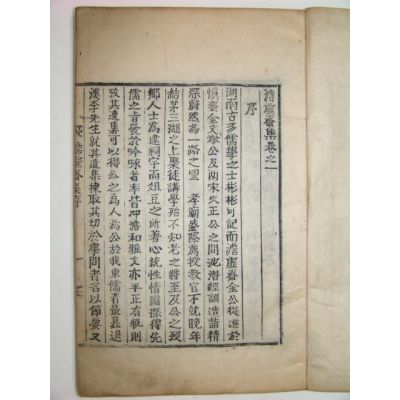 澹虛齋集卷之一
序
湖南古多儒學之士彬彬可記而澹虛齋金公從遊於
愼齋金文敬公及兩宋文正公之門沈潛經訓造詣精
深蔚然為一路之望 孝廟盛際薦授教官不就晚年
結茅三湖之上聚徒講學殆不知老之將至及公之歿
鄉人士為建祠宇而俎豆之所著心統性情圖深得先
儒之旨發於吟咏者率皆冲澹和雅文亦平正有軌則
攷其遺集可以得公之為人焉公於我東儒者最慕退
溪李先生就其遺集揀取其切於學問者名以節要又
澹虛齋集序 一